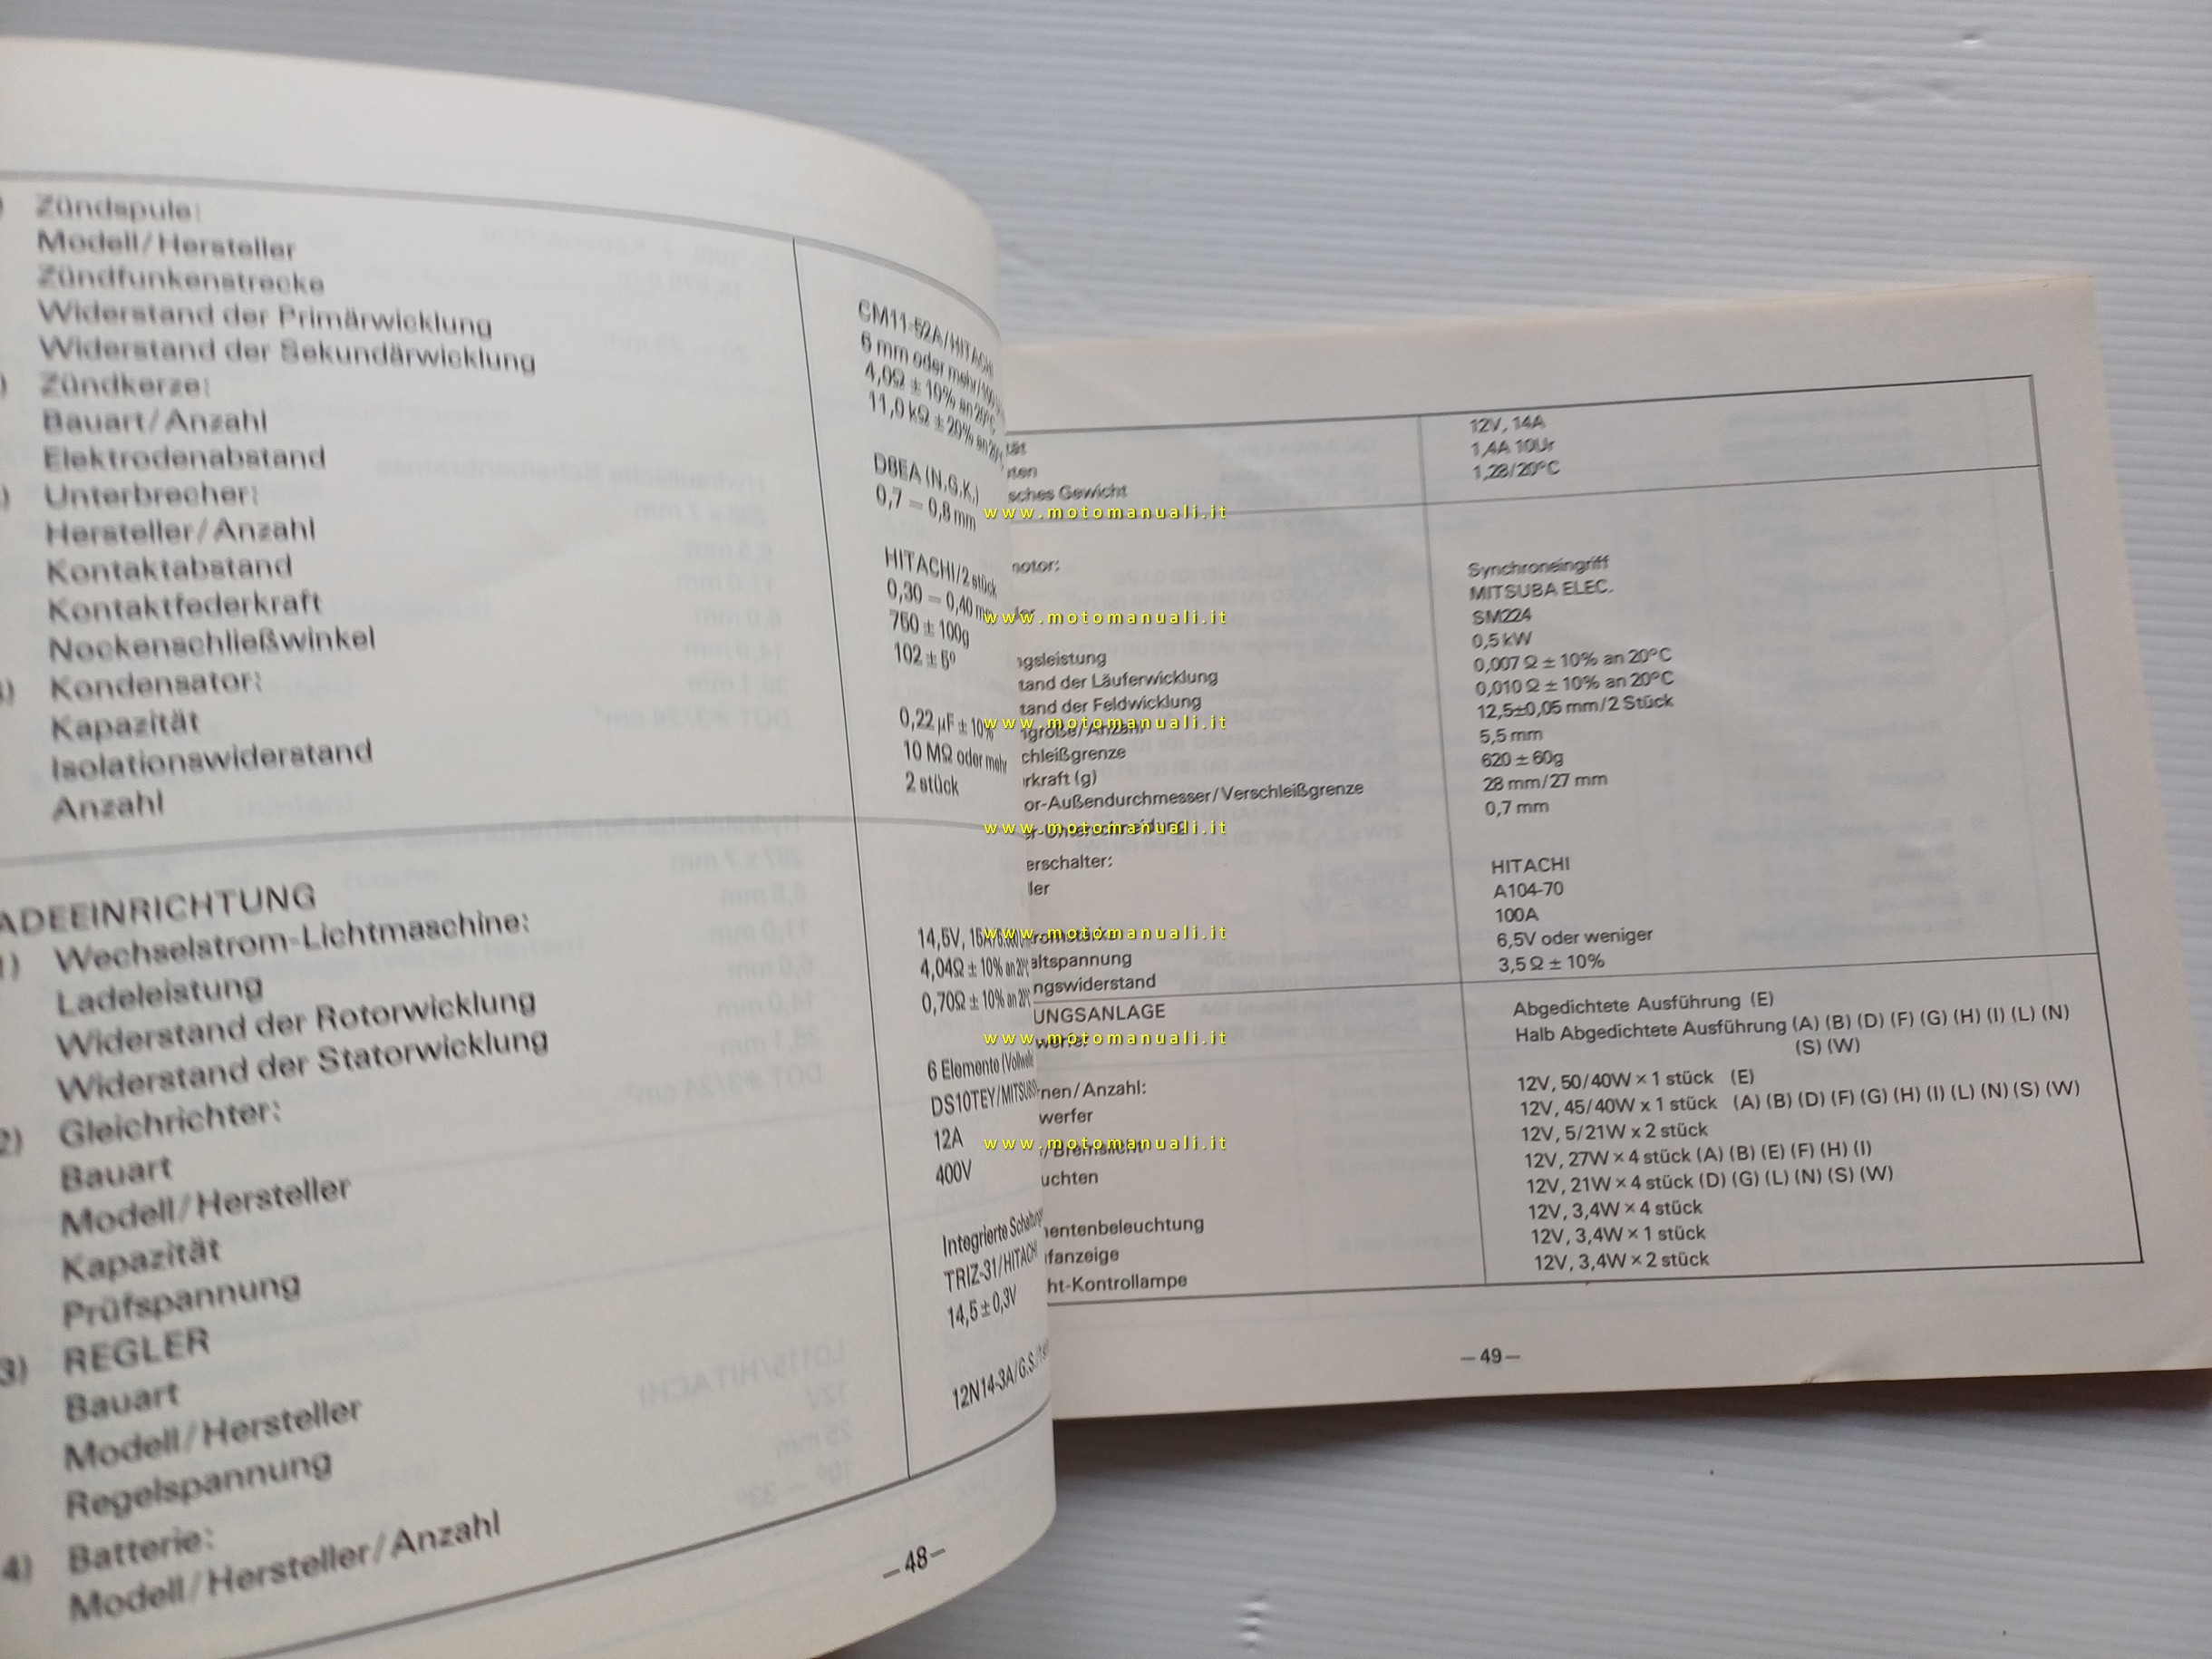 Zündspule:
Modell/Hersteller
CM11-52A/HITACHI
Zündfunkenstrecke
6 mm oder mehr/
Widerstand der Primärwicklung
4,0Ω ± 10% an 20°C
Widerstand der Sekundärwicklung
11,0 kΩ ± 20% an
Zündkerze:
Bauart/Anzahl
D8EA (N.G.K.)
Elektrodenabstand
0,7 – 0,8 mm
Unterbrecher:
Hersteller/Anzahl
HITACHI/2 stück
Kontaktabstand
0,30 – 0,40
Kontaktfederkraft
750 ± 100g
Nockenschließwinkel
102 ± 5°
Kondensator:
Kapazität
0,22 µF ± 10%
Isolationswiderstand
10 MΩ oder mehr
Anzahl
2 stück
ADEEINRICHTUNG
1) Wechselstrom-Lichtmaschine:
Ladeleistung
14,5V, 15A/
Widerstand der Rotorwicklung
4,04Ω ± 10% an
Widerstand der Statorwicklung
0,70Ω ± 10% an
2) Gleichrichter:
Bauart
6 Elemente
Modell/Hersteller
DS10TEY/MITSUBI
Kapazität
12A
Prüfspannung
400V
3) REGLER
Bauart
Integrierte
Modell/Hersteller
TRIZ-31/HITACHI
Regelspannung
14,5 ± 0,3V
4) Batterie:
Modell/Hersteller/Anzahl
12N14-3A/G.S./
–48–
12V, 14A
1,4A 10Ur
sches Gewicht 1,28/20°C
notor:
Synchroneingriff
MITSUBA ELEC.
SM224
ngsleistung 0,5 kW
tand der Läuferwicklung 0,007 Ω ± 10% an 20°C
tand der Feldwicklung 0,010 Ω ± 10% an 20°C
ngröße/Anzahl 12,5±0,05 mm/2 Stück
chleißgrenze 5,5 mm
rkraft (g) 620 ± 60g
or-Außendurchmesser/Verschleißgrenze 28 mm/27 mm
0,7 mm
erschalter:
ler HITACHI
A104-70
100A
altspannung 6,5V oder weniger
ngswiderstand 3,5 Ω ± 10%
UNGSANLAGE
Abgedichtete Ausführung (E)
Halb Abgedichtete Ausführung (A) (B) (D) (F) (G) (H) (I) (L) (N)
(S) (W)
nen/Anzahl:
werfer 12V, 50/40W × 1 stück (E)
12V, 45/40W x 1 stück (A) (B) (D) (F) (G) (H) (I) (L) (N) (S) (W)
/Bremslicht 12V, 5/21W x 2 stück
uchten 12V, 27W × 4 stück (A) (B) (E) (F) (H) (I)
12V, 21W × 4 stück (D) (G) (L) (N) (S) (W)
entenbeleuchtung 12V, 3,4W × 4 stück
fanzeige 12V, 3,4W × 1 stück
ht-Kontrollampe 12V, 3,4W × 2 stück
–49–
www.motomanuali.it
www.motomanuali.it
www.motomanuali.it
www.motomanuali.it
www.motomanuali.it
www.motomanuali.it
www.motomanuali.it